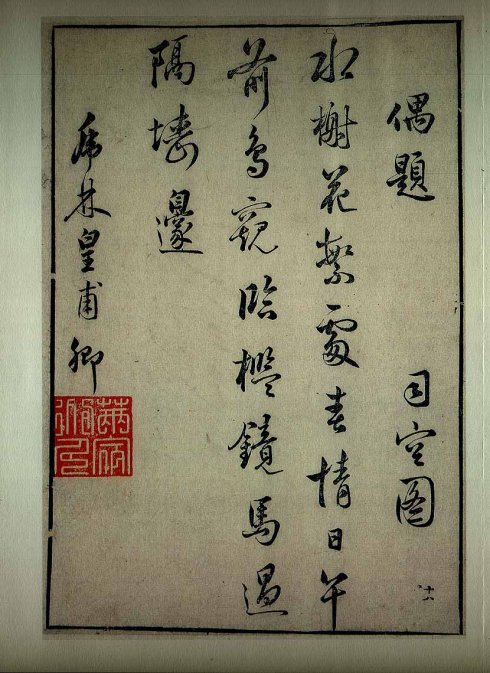 偶題　司空圖
水榭花繁處春情日午
前鳥窺臨檻鏡馬過
隔墻邊
虎林皇甫卿
十六